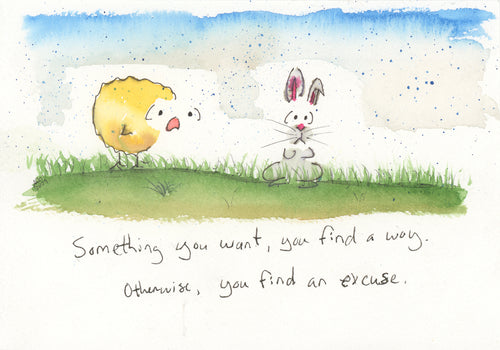 Something you want, you find a way.
Otherwise, you find an excuse.